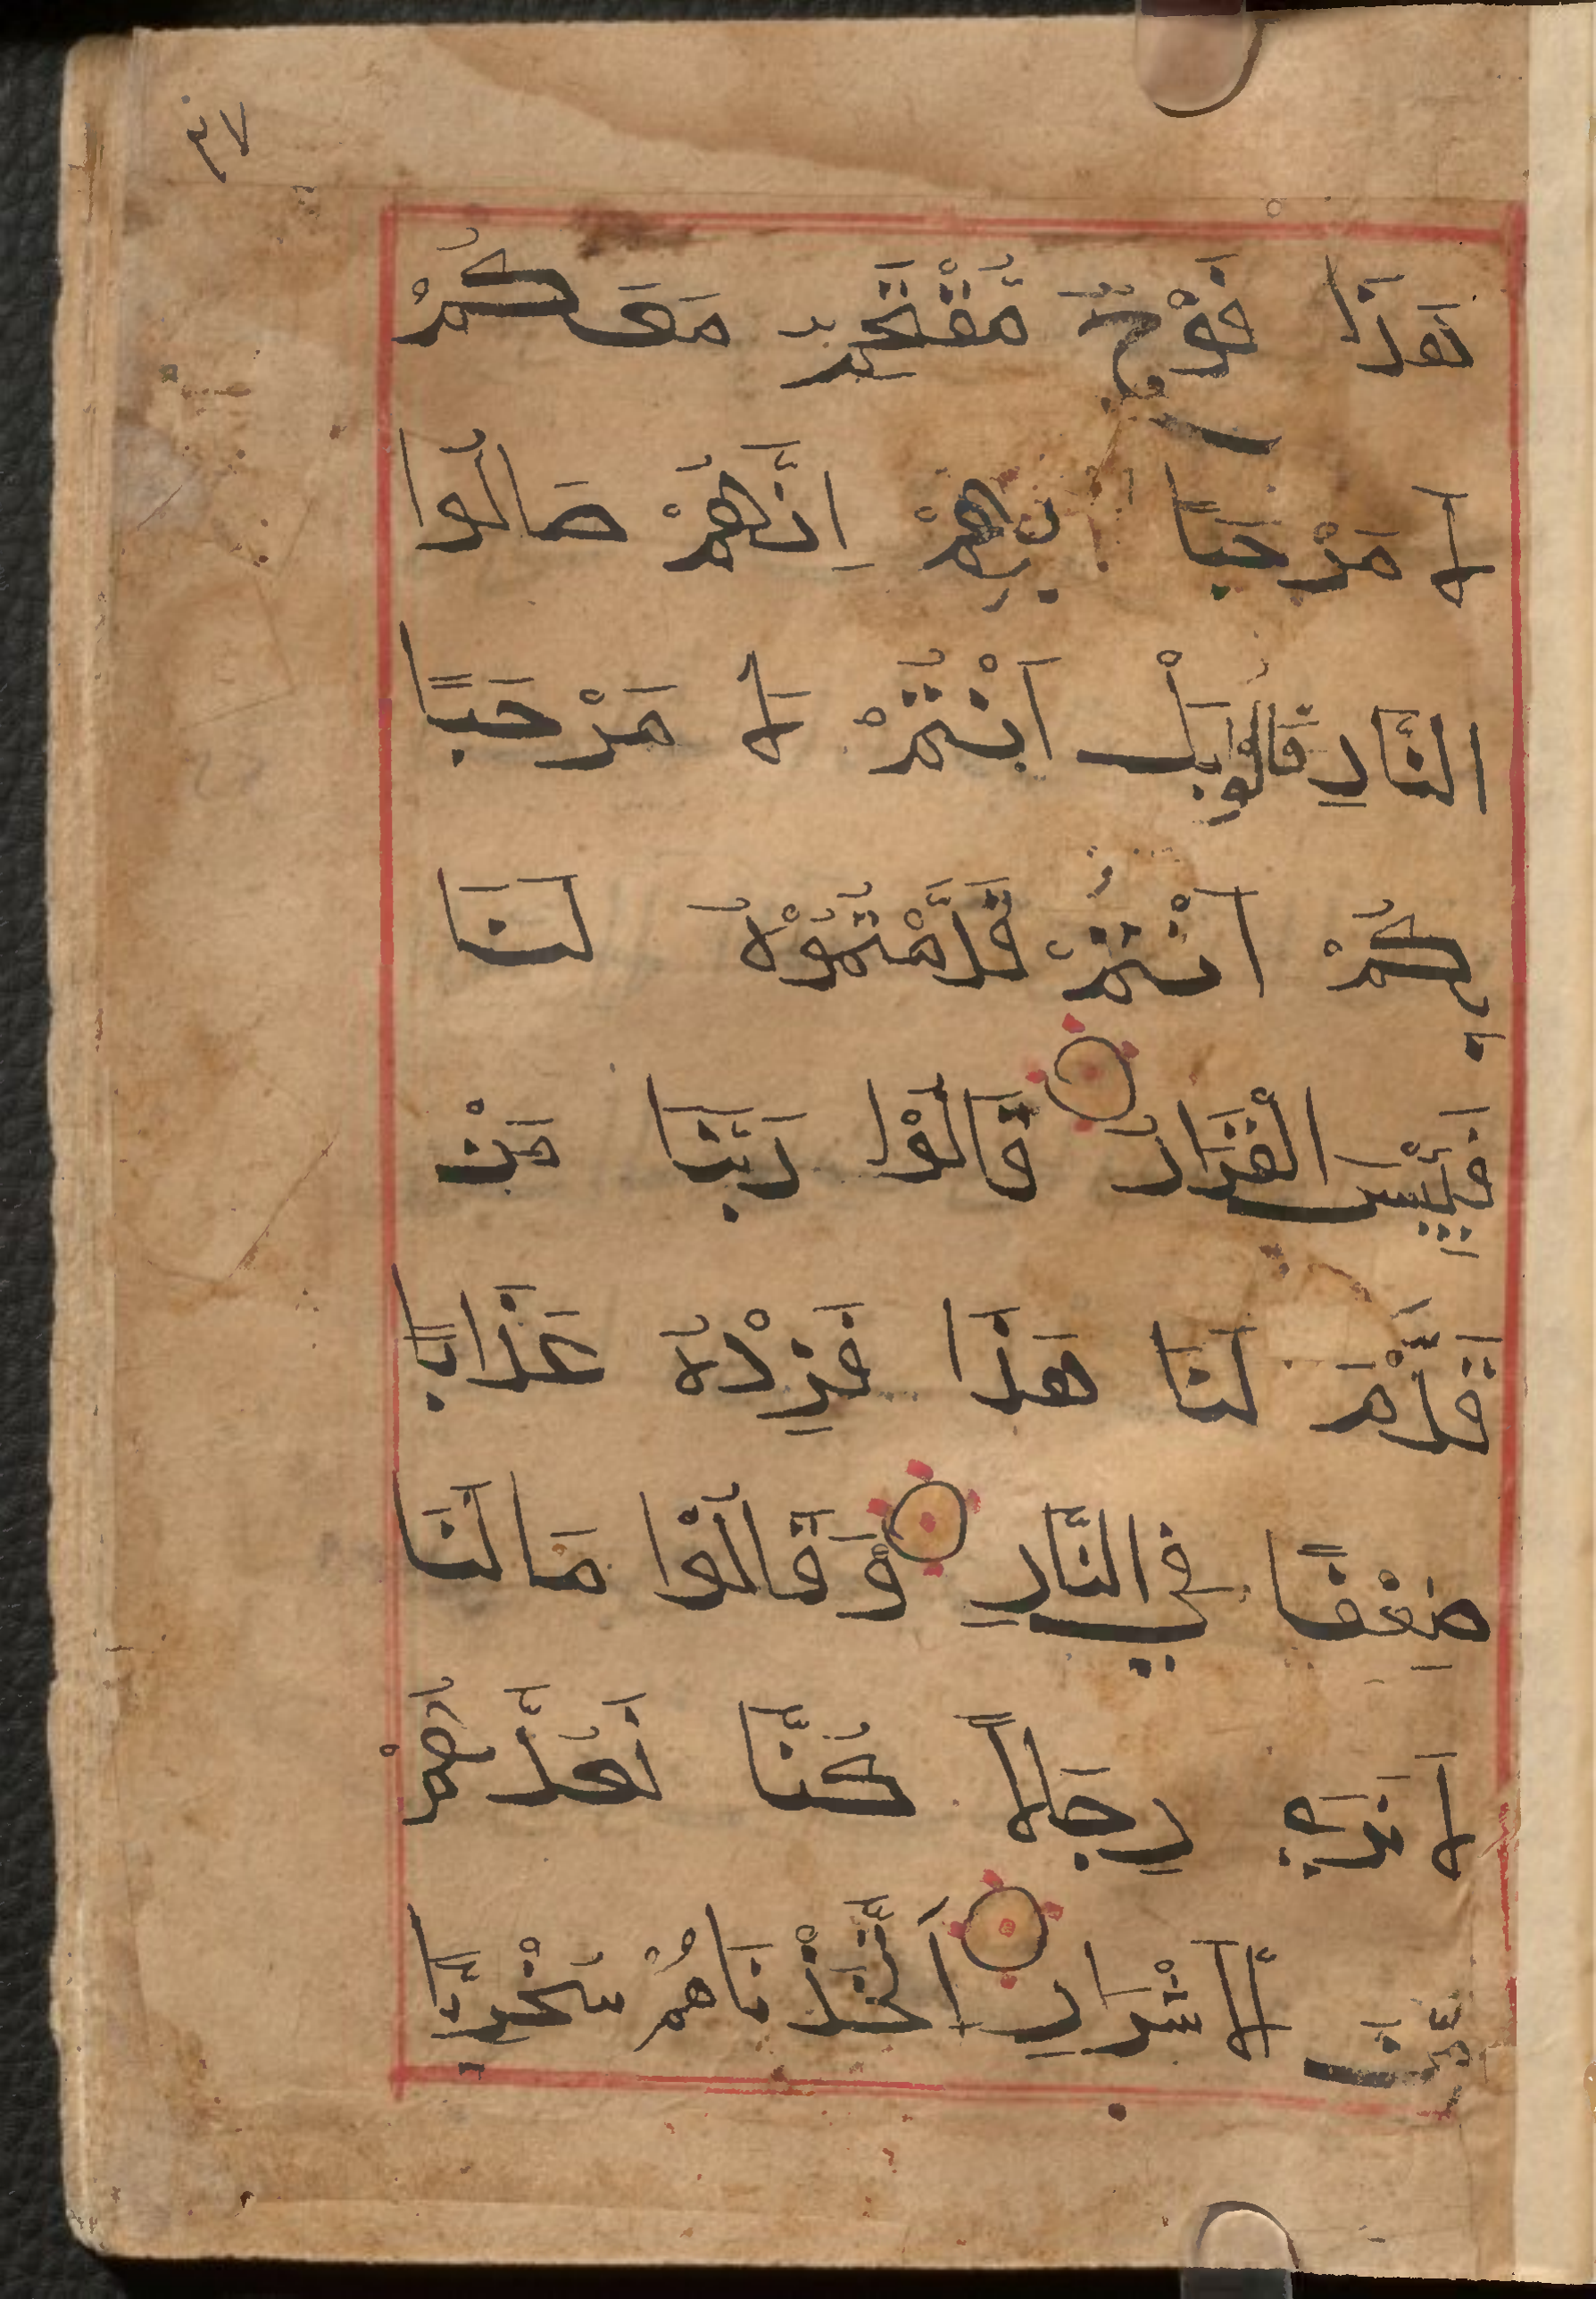 هَذَا فَوْجٌ مُقْتَحِمٌ مَعَكُمْ
لَا مَرْحَبًا بِهِمْ اِنَّهُمْ صَالُوا
النَّارِ قَالُوا بَلْ اَنْتُمْ لَا مَرْحَبًا
بِكُمْ اَنْتُمْ قَدَّمْتُمُوْهُ لَنَا
فَبِئْسَ الْقَرَارُ قَالُوْا رَبَّنَا مَنْ
قَدَّمَ لَنَا هَذَا فَزِدْهُ عَذَابًا
ضِعْفًا فِي النَّارِ وَقَالُوْا مَا لَنَا
لَا نَرَي رِجَالًا كُنَّا نَعُدُّهُمْ
مِّنَ الْاَشْرَارِ اَتَّخَذْنَاهُمْ سُخْرِيًّا